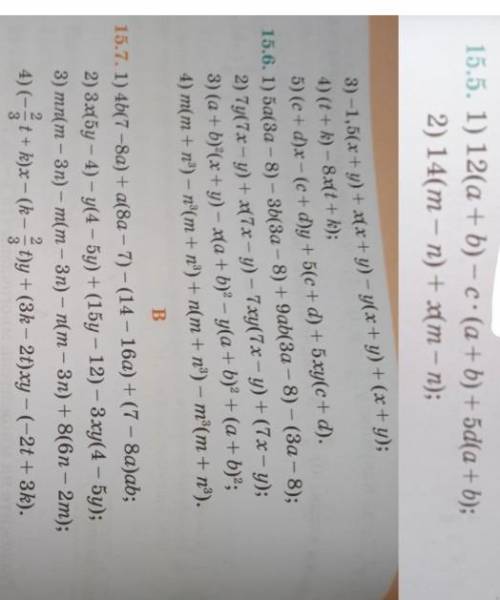 15.5. 1) 12(a + b) – c · (a + b) + 5d(a + b);
2) 14(m – n) + x(m – n);
3) –1,5(x + y) + x(x + y) – y(x + y) + (x + y);
4) (t + k) – 8x(t + k);
5) (c + d)x – (c + d)y + 5(c + d) + 5xy(c + d).
15.6. 1) 5a(3a – 8) – 3b(3a – 8) + 9ab(3a – 8) – (3a – 8);
2) 7y(7x – y) + x(7x – y) – 7xy(7x – y) + (7x – y);
3) (a + b)²(x + y) – x(a + b)² – y(a + b)² + (a + b)²;
4) m(m + n³) – n³(m + n³) + n(m + n³) – m³(m + n³).
B
15.7. 1) 4b(7 – 8a) + a(8a – 7) – (14 – 16a) + (7 – 8a)ab;
2) 3x(5y – 4) – y(4 – 5y) + (15y – 12) – 3xy(4 – 5y);
3) mn(m – 3n) – m(m – 3n) – n(m – 3n) + 8(6n – 2m);
4) (–2/3t + k)x – (k – 2/3t)y + (3k – 2t)xy – (–2t + 3k).